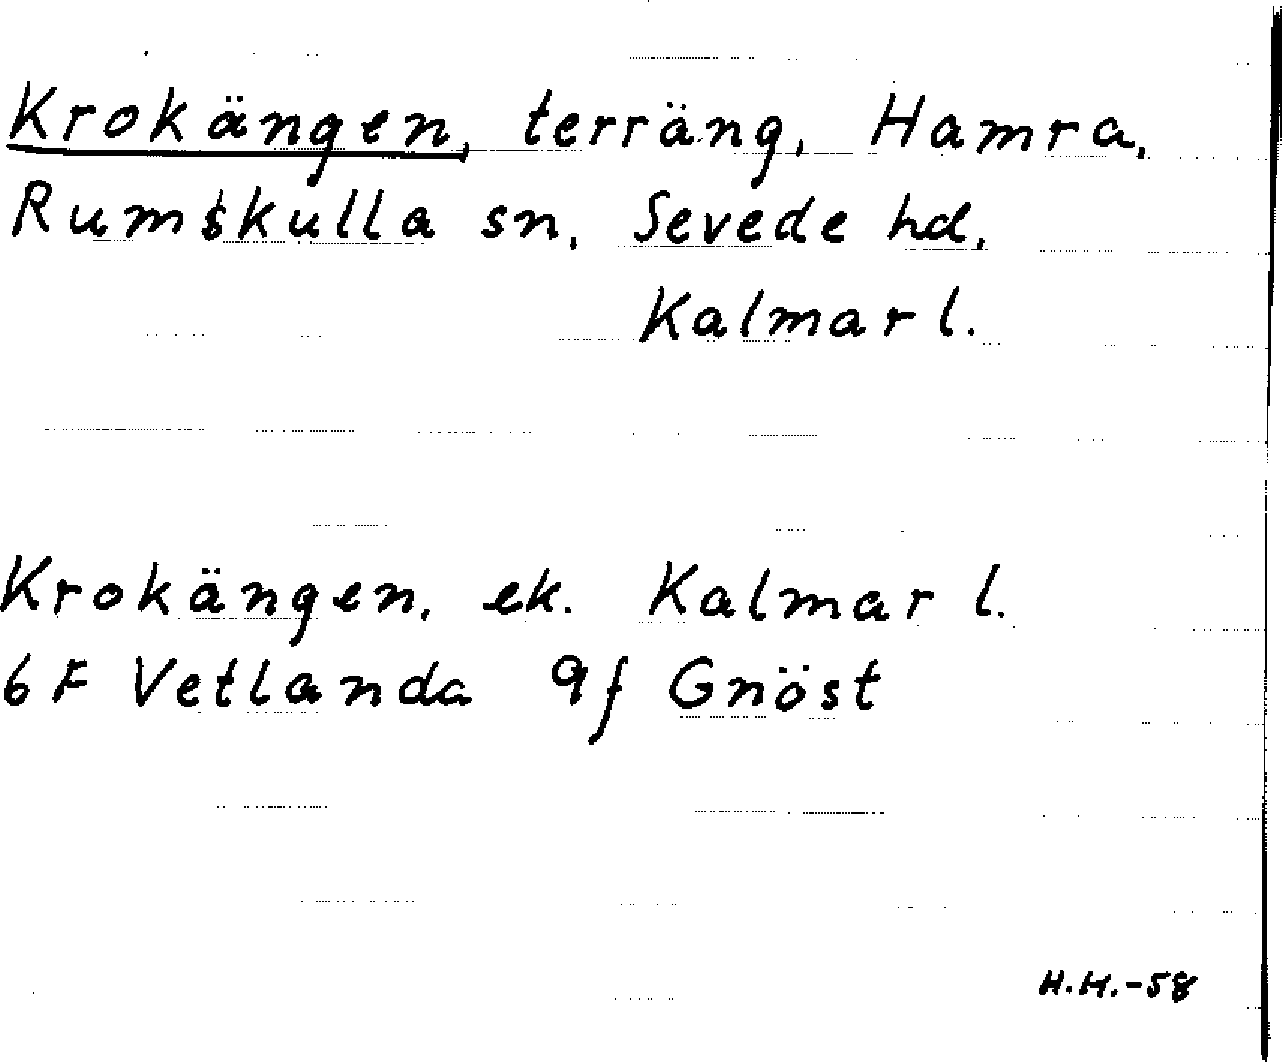 Krokängen, terräng, Hamra,
Rumskulla sn, Sevede hd,
Kalmar l.
Krokängen, ek. Kalmar l.
6F Vetlanda 9f Gnöst
H.H.-58